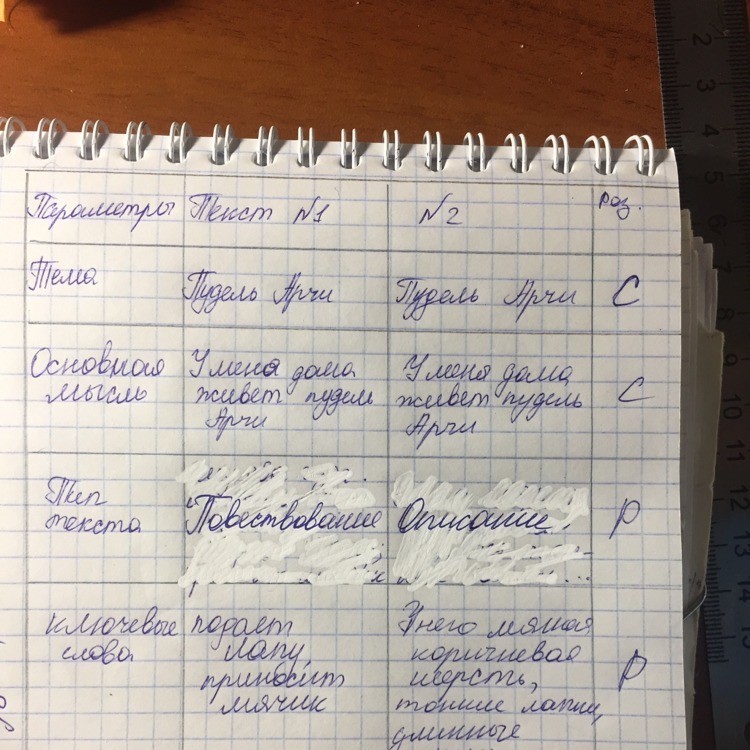 Параметры Текст №1 №2 Раз.
Тема Пудель Арчи Пудель Арчи С
Основная мысль
У меня дома
живет пудель
Арчи
У меня дома
живет пудель
Арчи
С
Тип
текста
Повествование
Описание
Р
ключевые
слова
подает
лапу
приносит
мячик
У него мягкая
коричневая
шерсть,
тонкие лапки,
длинные
Р
2
3
4
5
6
7
8
9
10
11
12
13
14
15